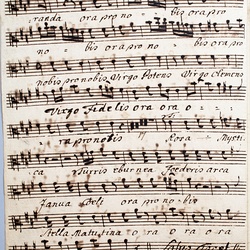 randa ora pro no - - bis ora pro
no - - bis ora pro no - - bis ora pro
nobis pro nobis Virgo Potens Virgo Clemens
Virgo Fidelis ora ora o - - -
ra pro nobis Rosa Mysti
ca Turris eburnea Foederis arca
Janua Coeli ora pro no - bis
Stella Matutina ora ora ora